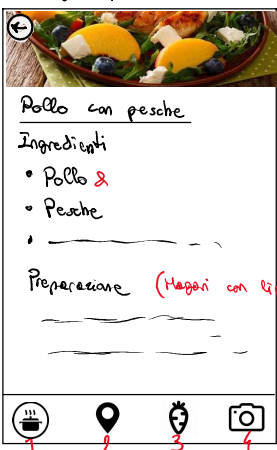 Pollo con pesche
Ingredienti
• Pollo 2
• Pesche
•
Preparazione (Magari con
1 2 3 4